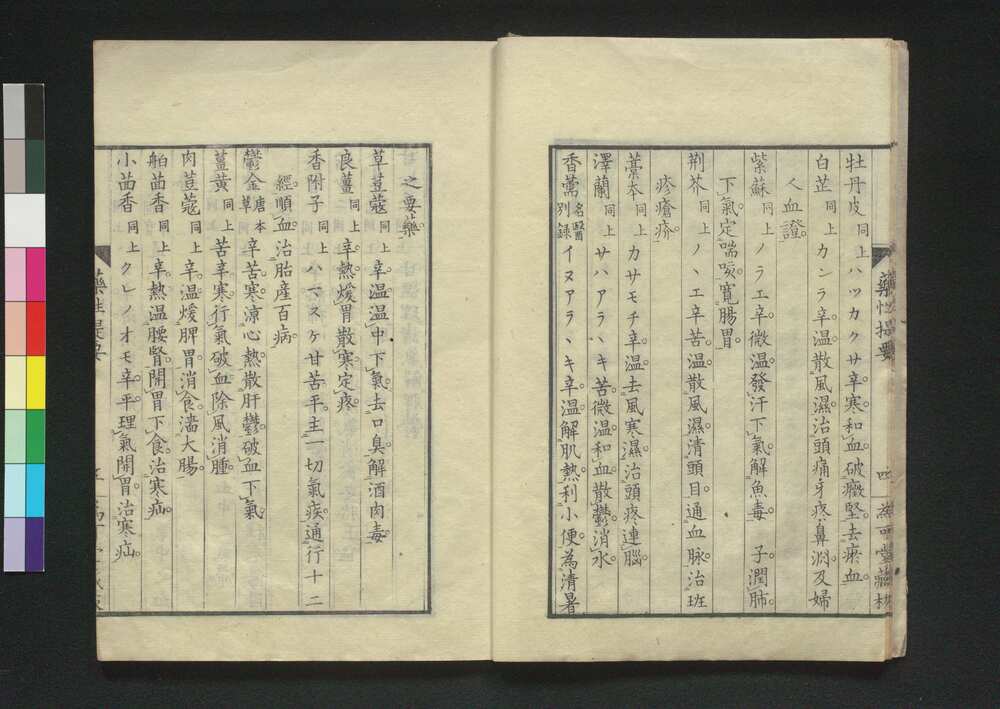 藥性提要 四
牡丹皮 同上 ハツカクサ辛寒和血破癥堅去瘀血
白芷 同上 カンラ辛温散風濕治頭痛牙疼鼻淵及婦
人血證
紫蘇 同上 ノラエ辛微温發汗下氣解魚毒 子潤肺
下氣定喘咳寛腸胃
荆芥 同上 ノヽエ辛苦温散風濕清頭目通血脉治班
疹瘡疥
藁本 同上 カサモチ辛温去風寒濕治頭疼連腦
澤蘭 同上 サハアラヽキ苦微温和血散鬱消水
香薷 名醫別録 イヌアラヽキ辛温解肌熱利小便為清暑
之要藥
草荳蔻 同上 辛温温中下氣去口臭解酒肉毒
良薑 同上 辛熱煖胃散寒定疼
香附子 同上 ハマスケ甘苦平主一切氣疾通行十二
經順血治胎産百病
鬱金 唐本草 辛苦寒凉心熱散肝鬱破血下氣
薑黄 同上 苦辛寒行氣破血除風消腫
肉荳蔻 同上 辛温煖脾胃消食濇大腸
舶茴香 同上 辛熱温腰腎開胃下食治寒疝
小茴香 同上 クレノオモ辛平理氣開胃治寒疝
藥性提要